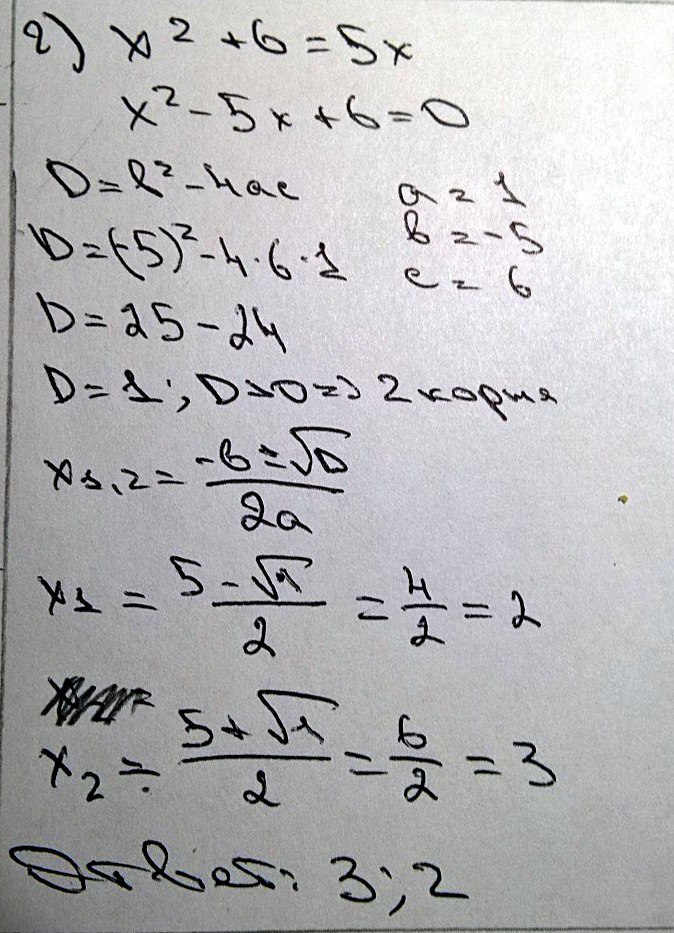 2) x² + 6 = 5x
x² - 5x + 6 = 0
D = b² - 4ac
a = 1
D = (-5)² - 4·6·1
b = -5
c = 6
D = 25 - 24
D = 1; D > 0 => 2 корня
x₁,₂ = (-b ± √D) / 2a
x₁ = (5 - √1) / 2 = 4/2 = 2
x₂ = (5 + √1) / 2 = 6/2 = 3
Ответ: 3; 2